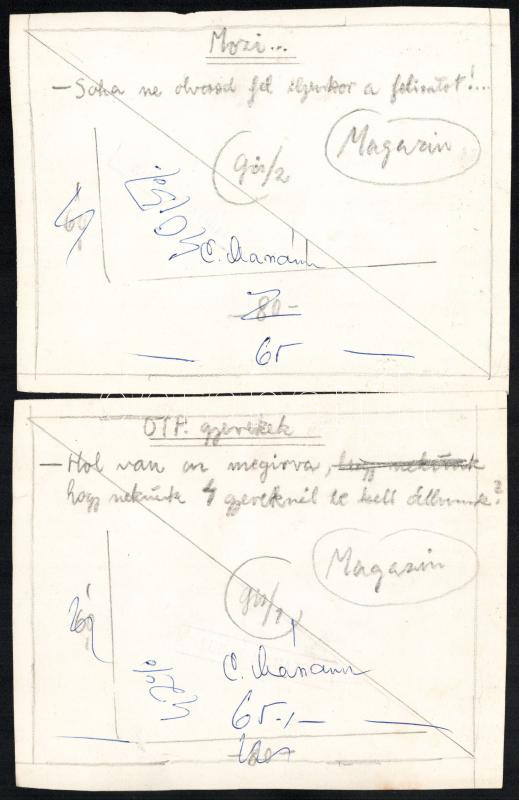 Mozi...
— Soha ne olvasd fel ilyenkor a feliratot!...
Magazin
Gör/2
C. Mariann
80-
65
OTP. gyerekek
— Hol van az megirva, hogy nekünk
hogy nekünk 4 gyereknél le kell állnunk?
Magazin
Gör/1
C. Mariann
65.-